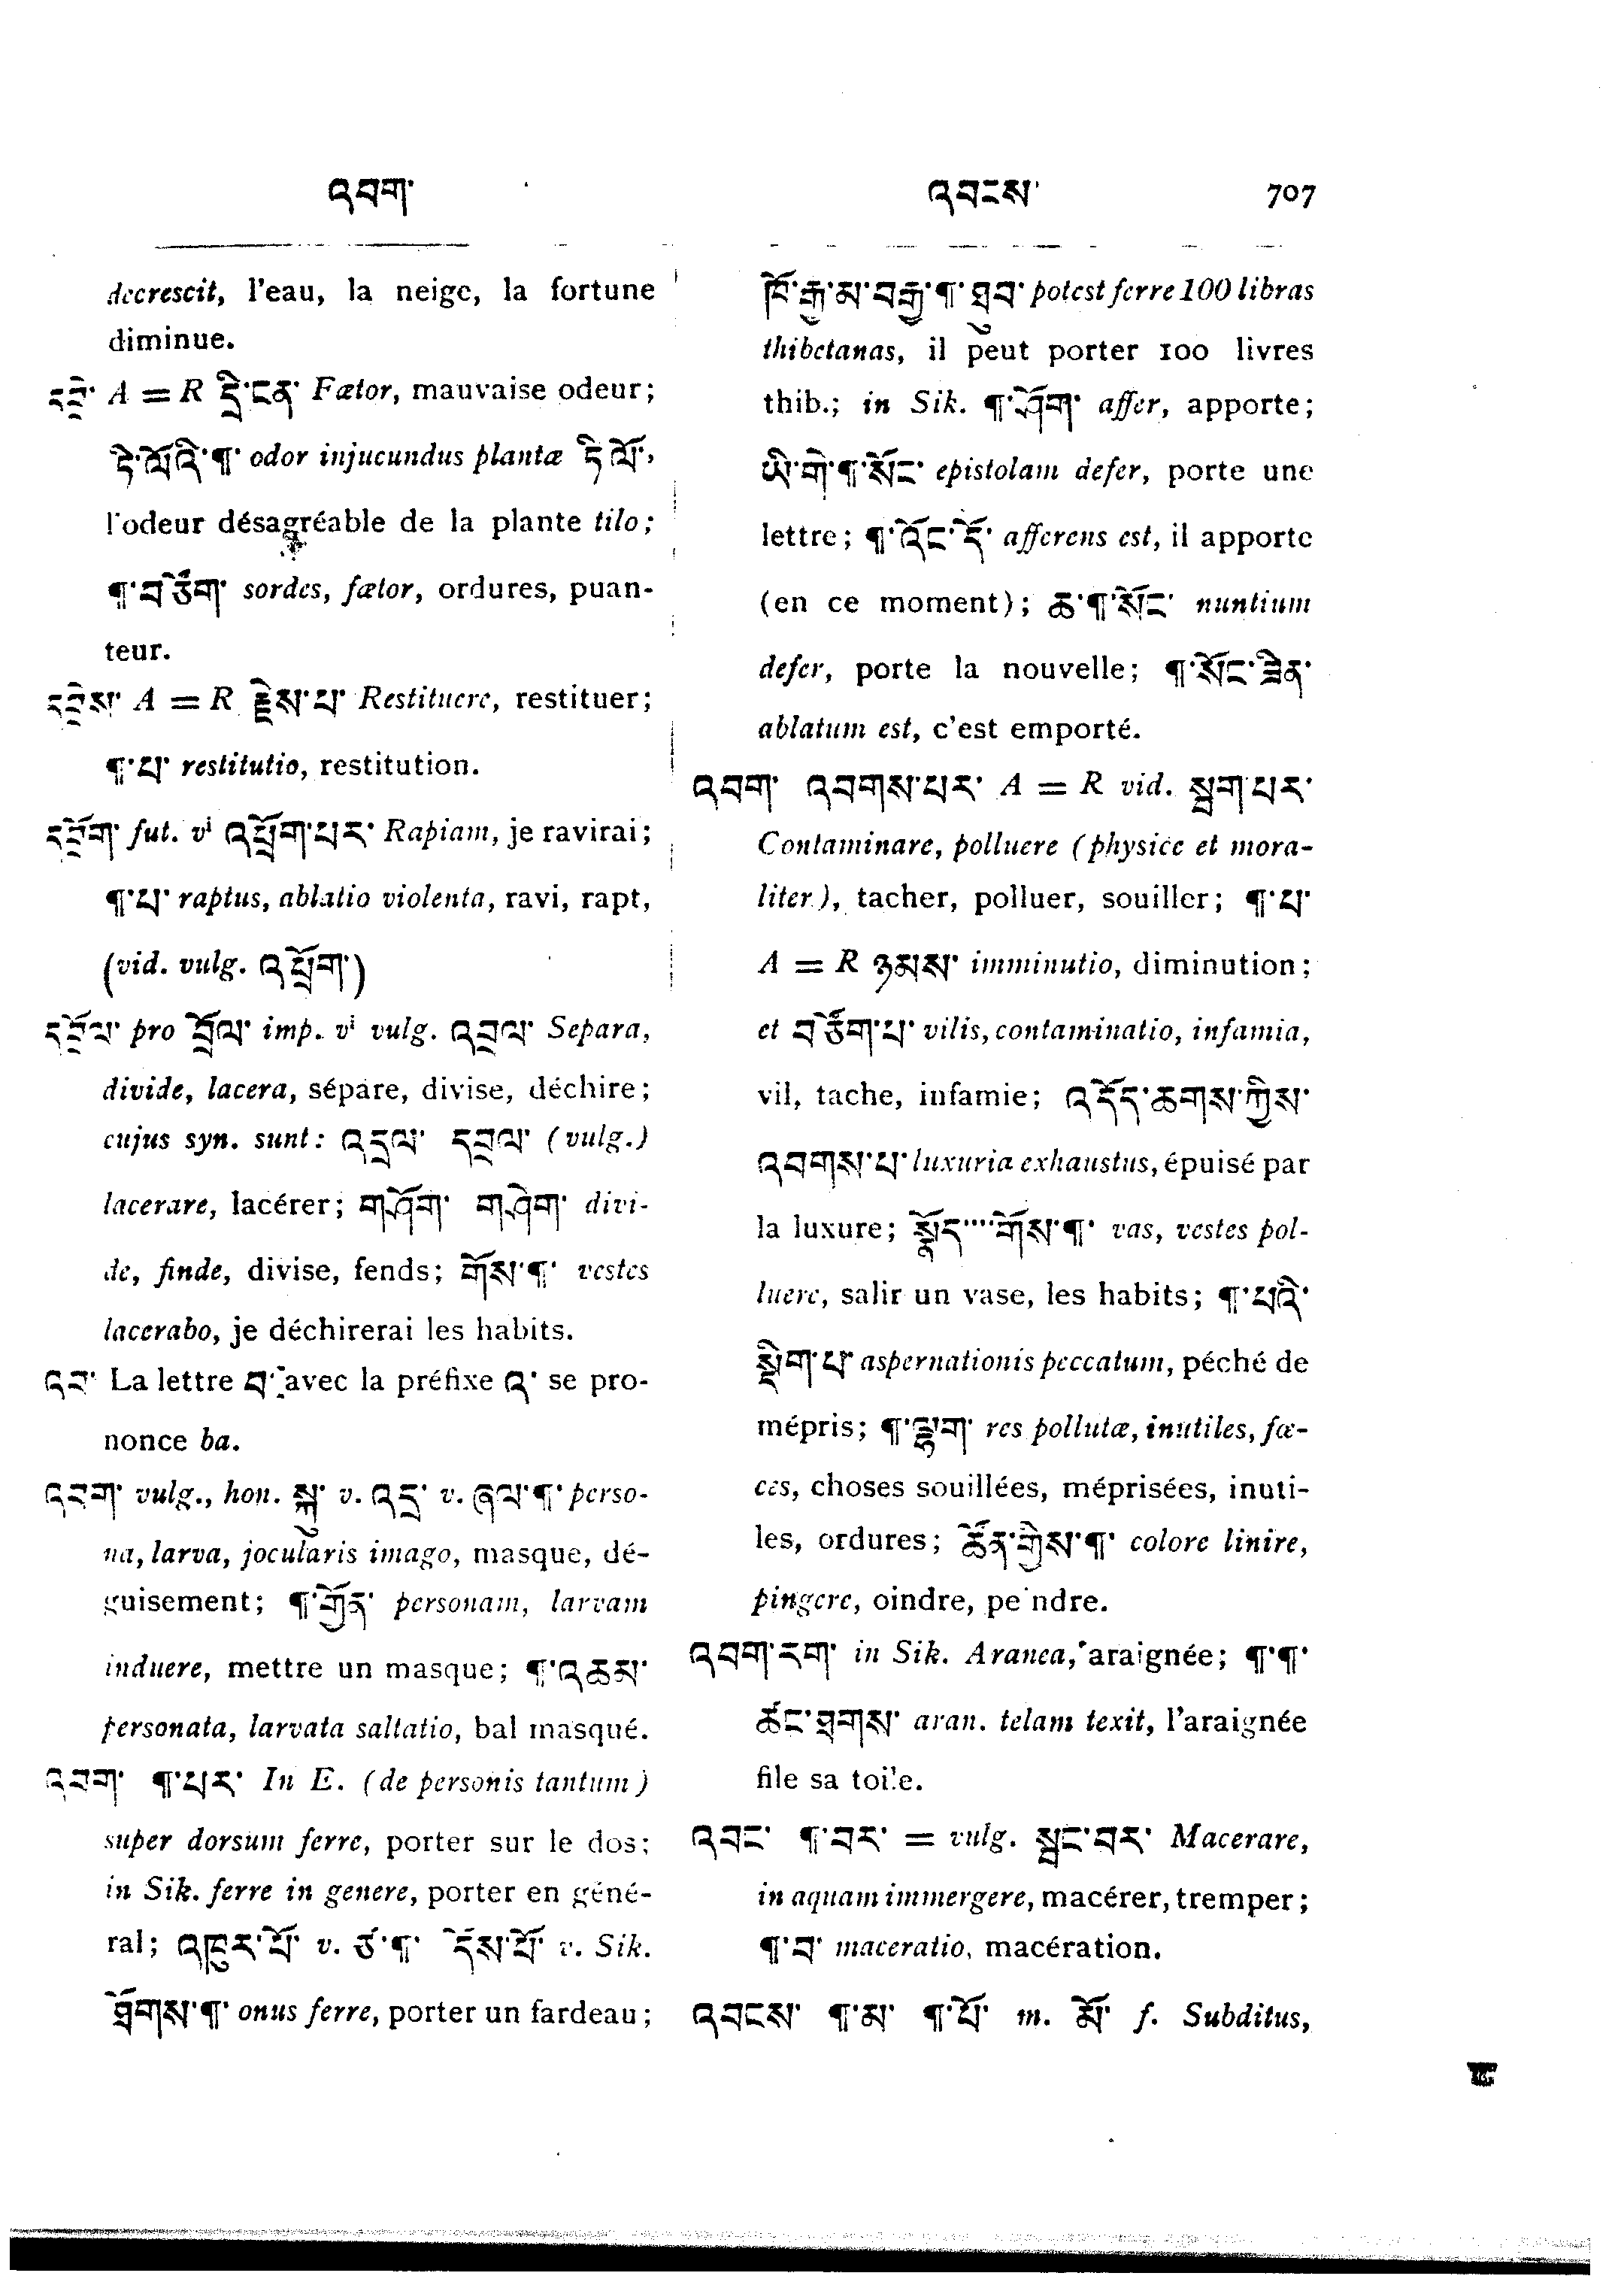 འབག་
འབངས་ 707
decrescit, l'eau, la neige, la fortune
diminue.
དབྲི་ A = R དྲི་ངན་ Fætor, mauvaise odeur;
¶་ odor injucundus plantæ
l'odeur désagréable de la plante tilo;
¶་བཙོག་ sordes, fætor, ordures, puan-
teur.
དབྲིས་ A = R Restituere, restituer;
¶་པ་ restitutio, restitution.
དབྲོག་ fut. vⁱ འཕྲོག་པར་ Rapiam, je ravirai;
¶་པ་ raptus, ablatio violenta, ravi, rapt,
(vid. vulg. འཕྲོག་)
དབྲོལ་ pro བྲོལ་ imp. vⁱ vulg. འབྲལ་ Separa,
divide, lacera, sépare, divise, déchire;
cujus syn. sunt: འདྲལ་ དབྲལ་ (vulg.)
lacerare, lacérer; གཤོག་ གཤེག་ divi-
de, finde, divise, fends; གོས་¶་ vestes
lacerabo, je déchirerai les habits.
འབ་ La lettre བ་ avec la préfixe འ་ se pro-
nonce ba.
འབག་ vulg., hon. སྐུ་ v. འདྲ་ v. ཞལ་¶་ perso-
na, larva, jocularis imago, masque, dé-
guisement; ¶་གྱོན་ personam, larvam
induere, mettre un masque; ¶་འཆམ་
personata, larvata saltatio, bal masqué.
འབག་ ¶་པར་ In E. (de personis tantum)
super dorsum ferre, porter sur le dos;
in Sik. ferre in genere, porter en géné-
ral; འཁུར་པོ་ v. ཙ་¶་ དོས་པོ་ v. Sik.
ཐོགས་¶་ onus ferre, porter un fardeau;
ཁོ་རྒྱ་མ་བརྒྱ་¶་ཐུབ་ potest ferre 100 libras
thibetanas, il peut porter 100 livres
thib.; in Sik. ¶་ཤོག་ affer, apporte;
ཡི་གེ་¶་སོང་ epistolam defer, porte une
lettre; ¶་འོང་དོ་ afferens est, il apporte
(en ce moment); ཆ་¶་སོང་ nuntium
defer, porte la nouvelle; ¶་སོང་ཟིན་
ablatum est, c'est emporté.
འབག་ འབགས་པར་ A = R vid. སྦག་པར་
Contaminare, polluere (physice et mora-
liter), tacher, polluer, souiller; ¶་པ་
A = R ཉམས་ imminutio, diminution;
et བཙོག་པ་ vilis, contaminatio, infamia,
vil, tache, infamie; འདོད་ཆགས་ཀྱིས་
འབགས་པ་ luxuria exhaustus, épuisé par
la luxure; སྣོད་...གོས་¶་ vas, vestes pol-
luere, salir un vase, les habits; ¶་པའི་
སྡིག་པ་ aspernationis peccatum, péché de
mépris; ¶་ལྷག་ res pollutæ, inutiles, fæ-
ces, choses souillées, méprisées, inuti-
les, ordures; ཚོན་གྱིས་¶་ colore linire,
pingere, oindre, peindre.
འབག་རག་ in Sik. Aranea, araignée; ¶་¶་
ཚང་ཐགས་ aran. telam texit, l'araignée
file sa toile.
འབང་ ¶་བར་ = vulg. སྦང་བར་ Macerare,
in aquam immergere, macérer, tremper;
¶་བ་ maceratio, macération.
འབངས་ ¶་མ་ ¶་པོ་ m. མོ་ f. Subditus,